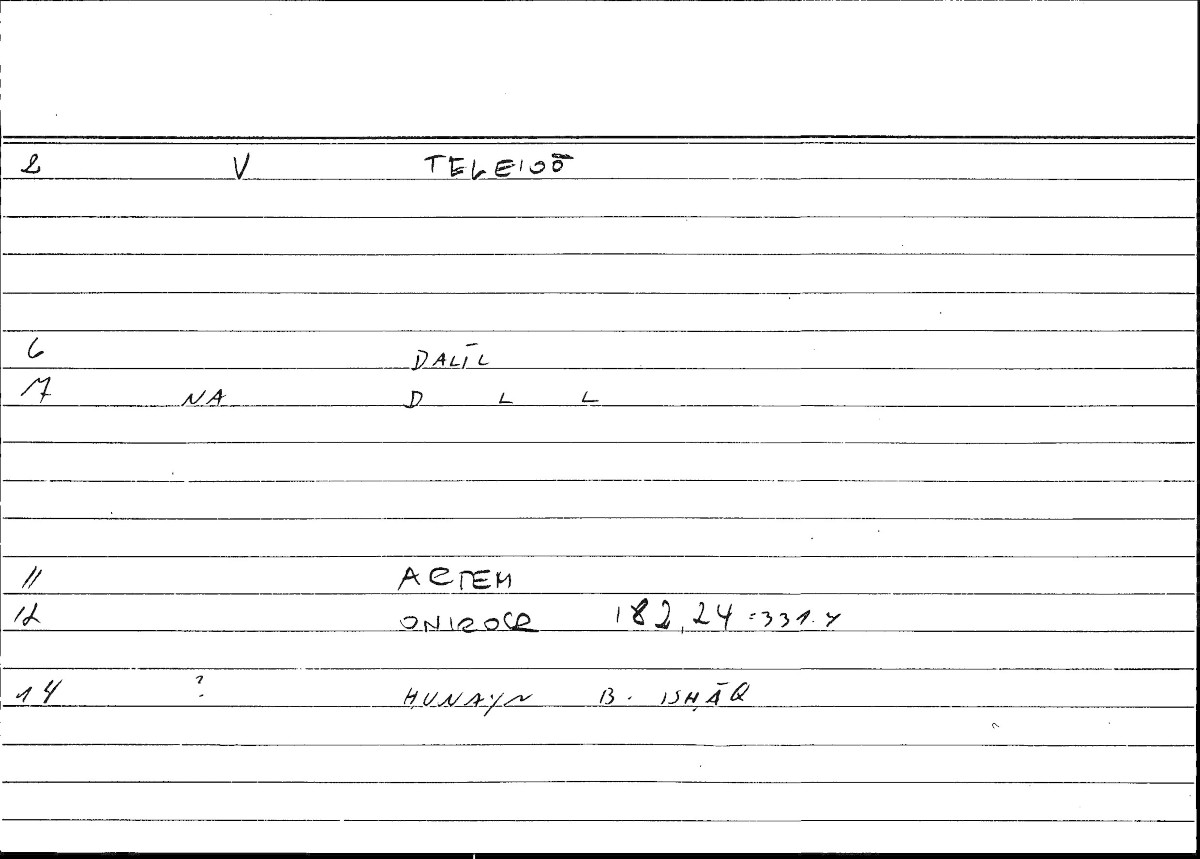 2 V TELEIOŌ
6 DALĪL
7 NA D L L
11 ARTEM
12 ONIROCR 182,24 = 331.4
14 ? ḤUNAYN B. ISḤĀQ